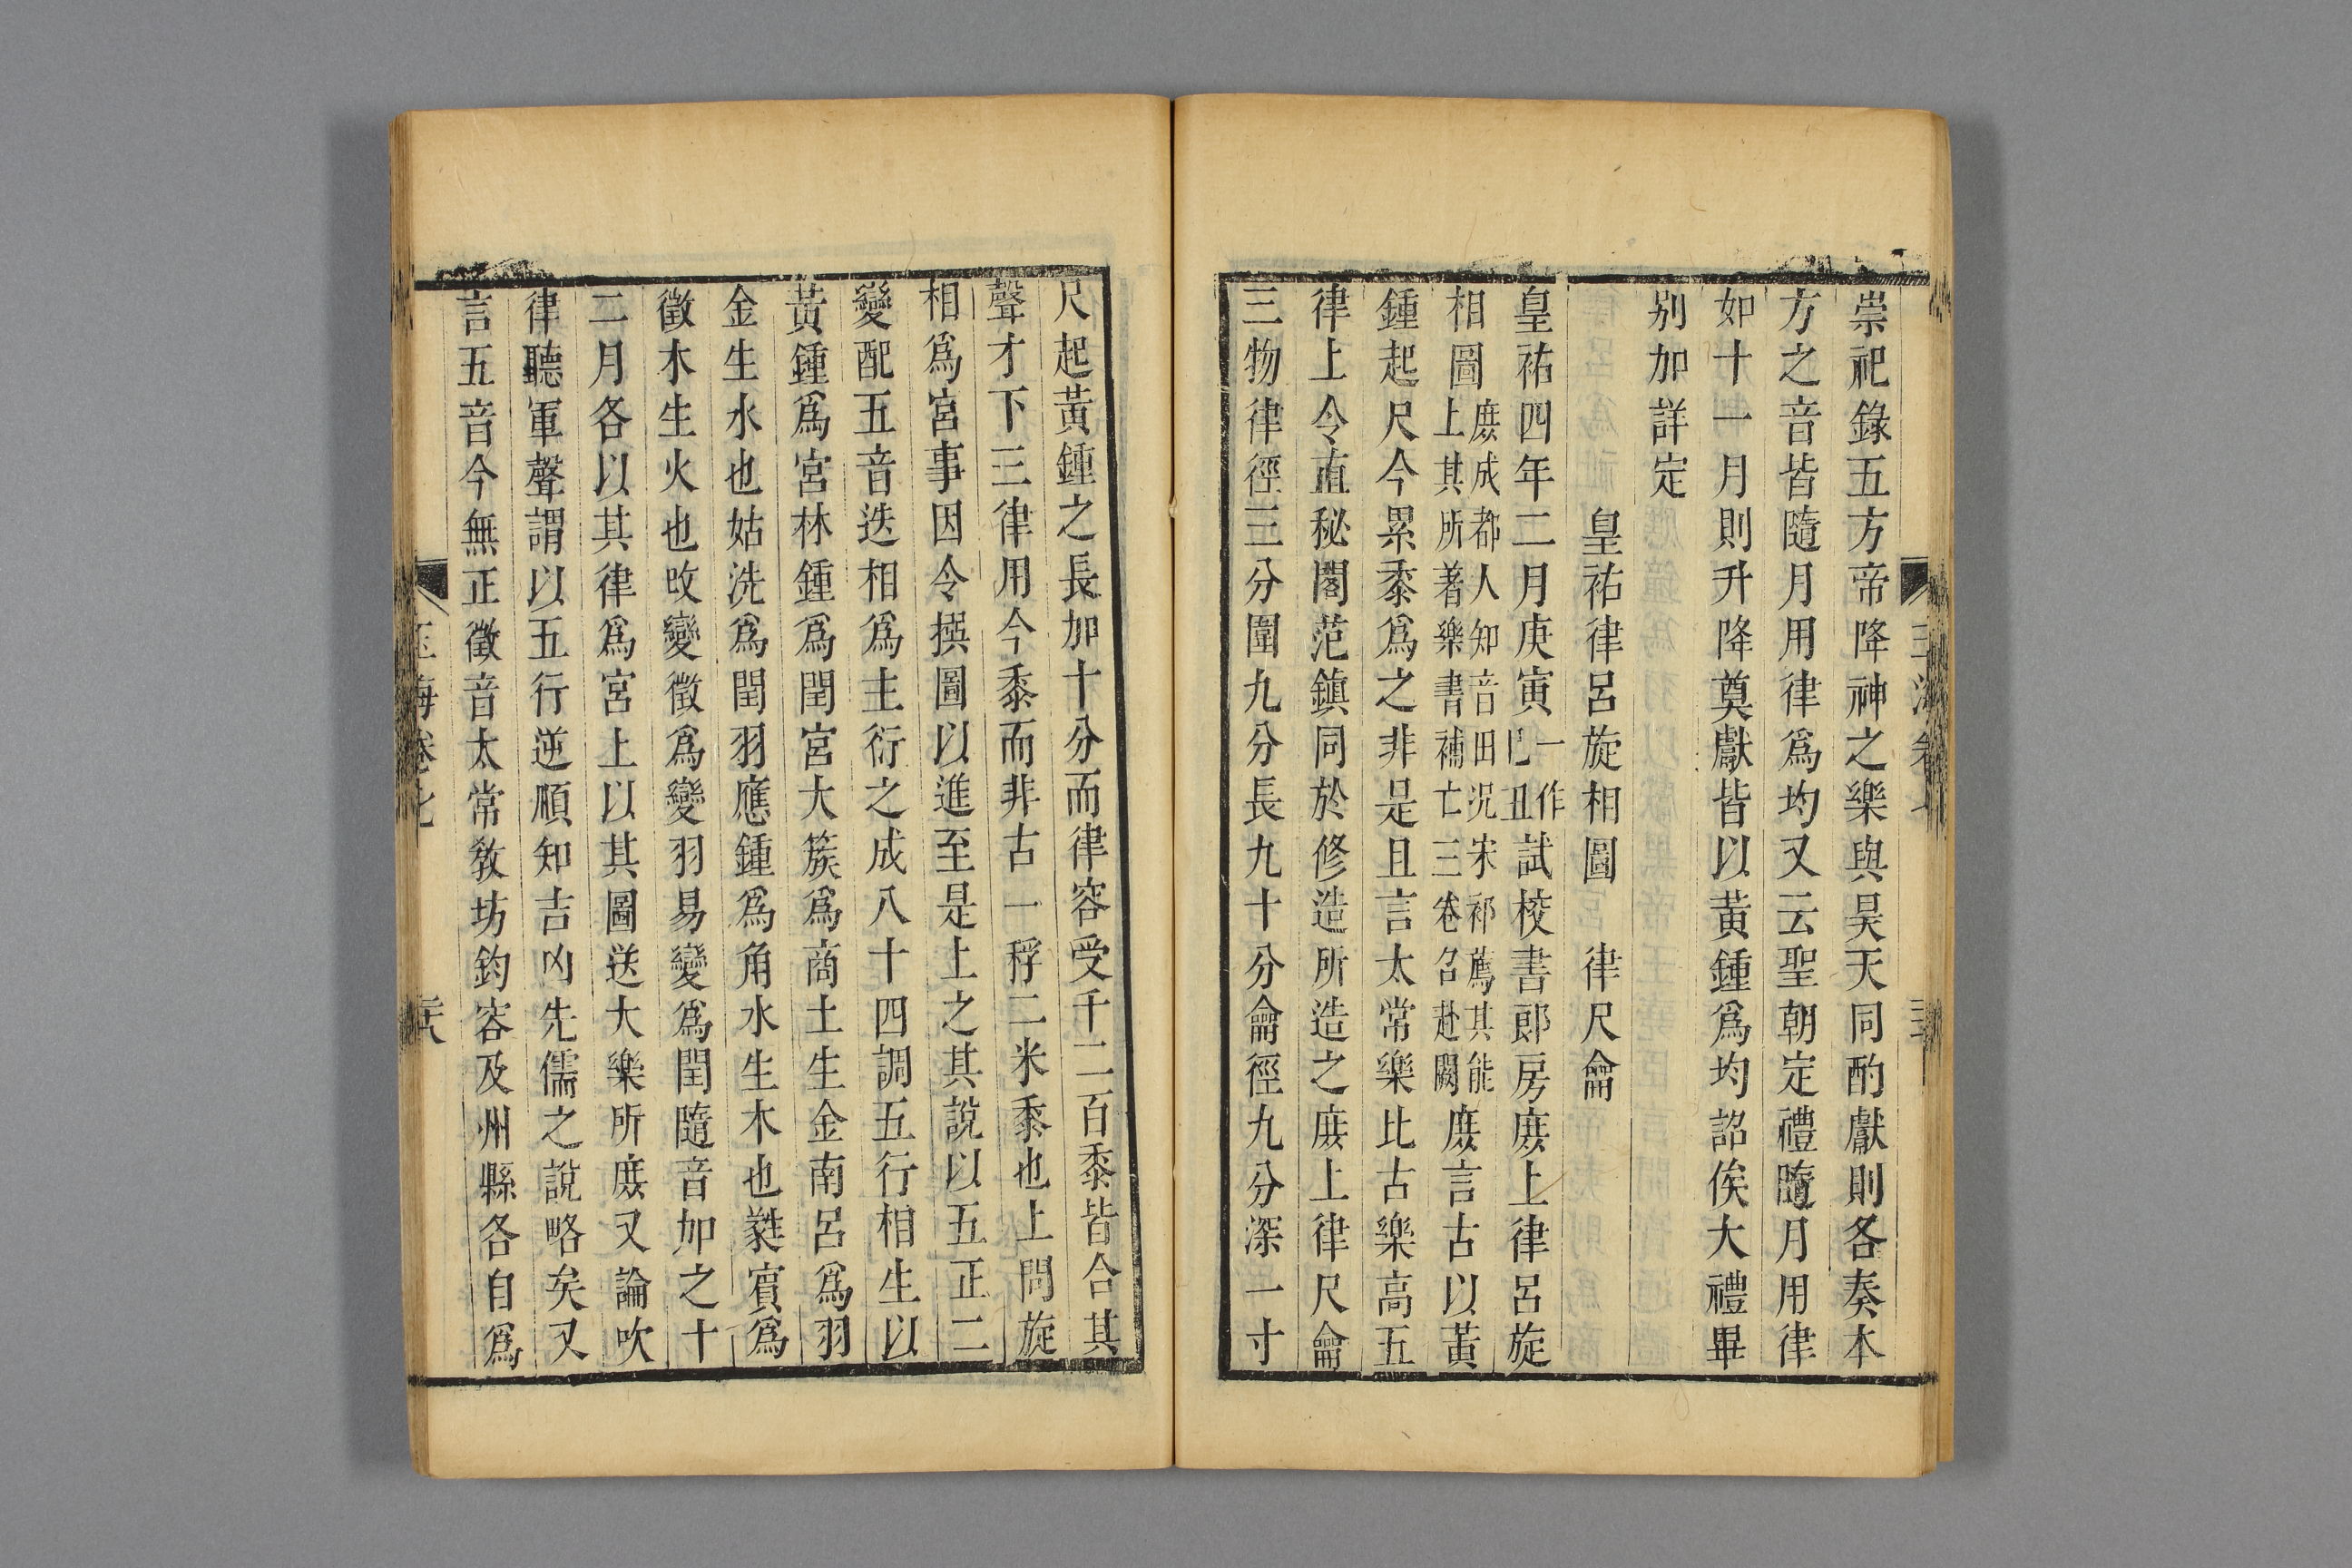 崇祀錄五方帝降神之樂與昊天同酌獻則各奏本
方之音皆隨月用律爲均又云聖朝定禮隨月用律
如十一月則升降奠獻皆以黃鍾爲均詔俟大禮畢
别加詳定
皇祐律呂旋相圖　律尺龠
皇祐四年二月庚寅一作己丑試校書郎房庶上律呂旋
相圖庶成都人知音田況宋祁薦其能上其所著樂書補亡三卷召赴闕庶言古以黃
鍾起尺今累黍爲之非是且言太常樂比古樂高五
律上令直秘閣范鎮同於修造所造之庶上律尺龠
三物律徑三分圍九分長九十分龠徑九分深一寸
尺起黃鍾之長加十分而律容受千二百黍皆合其
聲才下三律用今黍而非古一稃二米黍也上問旋
相爲宮事因令撰圖以進至是上之其說以五正二
變配五音迭相爲主衍之成八十四調五行相生以
黃鍾爲宮林鍾爲閏宮大簇爲商土生金南呂爲羽
金生水也姑洗爲閏羽應鍾爲角水生木也蕤賓爲
徵木生火也攺變徵爲變羽易變爲閏隨音加之十
二月各以其律爲宮上以其圖送大樂所庶又論吹
律聽軍聲謂以五行逆順知吉凶先儒之說略矣又
言五音今無正徵音太常敎坊鈞容及州縣各自爲
玉海卷七